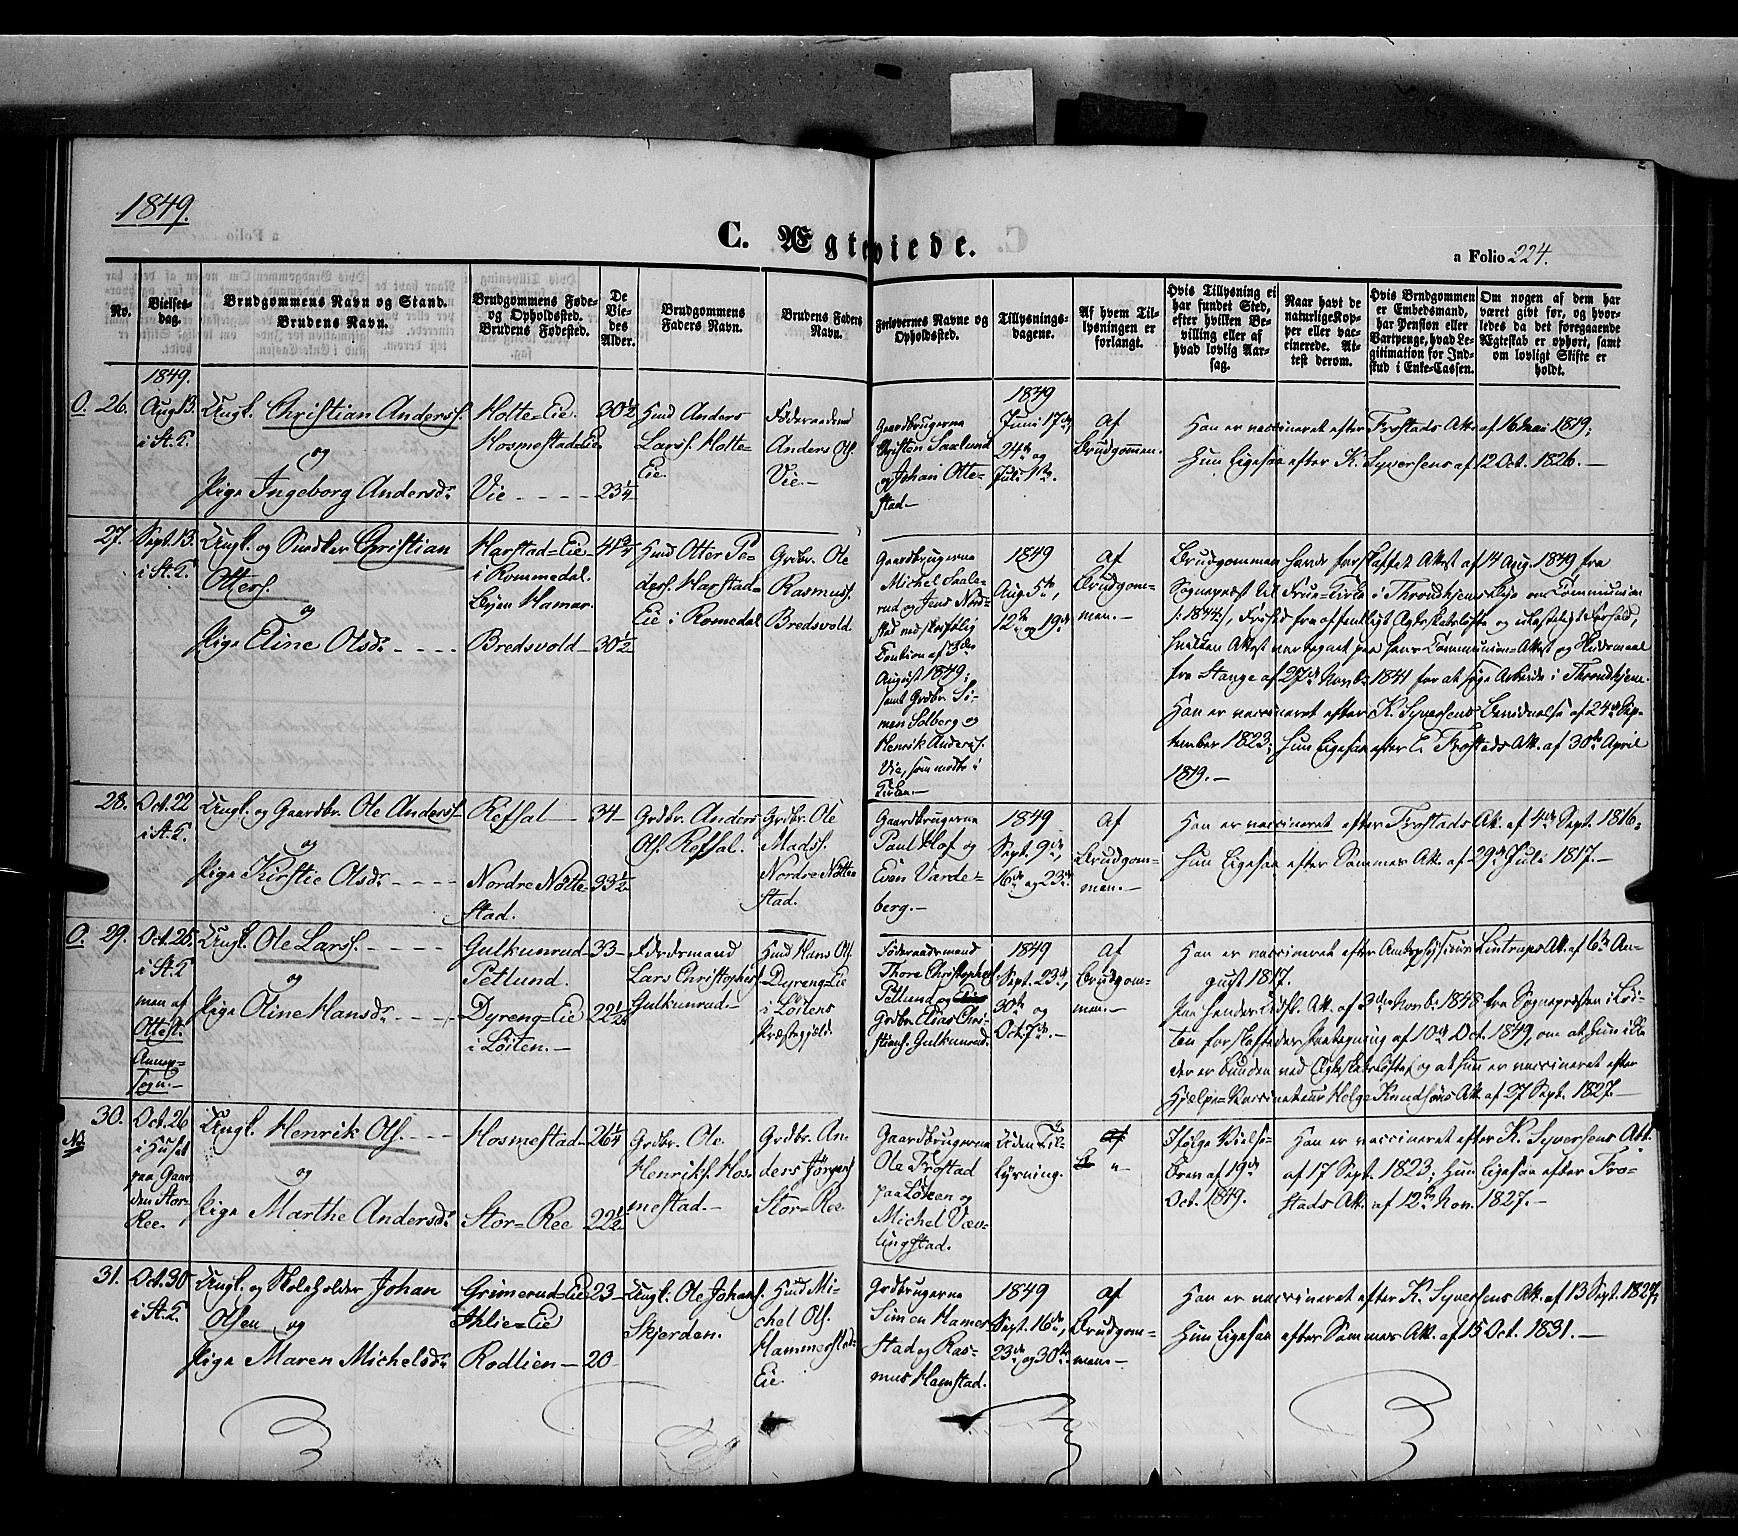 1849.
C. Ægteviede.
a Folio 224.
No.
Vielses-
dag.
Brudgommens Navn og Stand.
Brudens Navn.
Brudgommens Føde-
og Opholdssted.
Brudens Fødested.
De
Vie-
des
Alder.
Brudgommens
Faders Navn.
Brudens Faders
Navn.
Forlovernes Navne og
Opholdssted.
Tillysnings-
dagene.
Af hvem Til-
lysningen er
forlangt.
Hvis Tillysning ei
har fundet Sted,
efter hvilken Be-
villing eller af
hvad lovlig Aar-
sag.
Naar havt de
naturlige Kop-
per eller vac-
cinerede. At-
test derom.
Hvis Brudgommen
er Embedsmand,
har Pension eller
Vartpenge, hvad Le-
gitimation for Ind-
skud i Enke-Cassen.
Om nogen af dem har
været givt før, og hvor-
ledes da det foregaaende
Ægteskab er ophørt, samt
om lovligt Skifte er
holdt.
O. 26.
1849.
Aug 13.
i St. K.
Ungk. Christian Anders.
og
Pige Ingeborg Andersdr
Hotte=Eie.
Hosmestad=Eie
Vie - - - -
30 1/2
23 1/4
Husd Anders
Lars. Hotte=
Eie.
Föderaadsmd
Anders Ols.
Vie.-
Gaardbrugerne
Christen Saxlund
og Johan Otte-
stad.-
1849
Juni 17de,
24de og
Juli 1ste.
af
Brudgommen.
Han er vaccineret efter Frostads Att. af 16 Mai 1819;
Hun ligesaa efter K. Syversens af 12 Oct. 1826.-
27.
Sept. 13.
i St. K.
Ungk. og Snedker Christian
Otters.
og
Pige Eline Olsdr - - - -
Harstad=Eie
i Rommedal.
Byen Hamar.
Bredsvold
41 3/4
30 1/2
Husd Otter Pe-
ders. Harstad=
Eie i Romedal
Grdbr. Ole
Rasmuss.
Bredsvold
Gaardbrugerne
Michel Saale-
rud og Jens Nord-
stad ved skriftlig
Caution af 3die
August 1849;
samt Grdbr. Si-
men Solberg og
Henrik Anders.
Vie, som mødte i
Kirken.-
1849
Aug. 5te,
12te og 19de
af
Brudgom-
men.-
Brudgommen havde forskaffet Attest af 14 Aug. 1849 fra
Sognepræst til Frue=Kirke i Throndhjem
hvilken Attest var tegnet paa hans Communions=Attest og
fra Stange af 27de Novbr 1841 for at søge Arbeide i Throndhjem.
Han er vaccineret efter K. Syversens Bevidnelse af 24de Sep-
tember 1823; Hun ligesaa efter E. Frostads Att. af 30te April
1819.-
28.
Oct. 22
i St. K.
Ungk. og Gaardbr. Ole Anders.
og
Pige Kirstie Olsdr - - - -
Refsal
Nordre Nötte-
stad.
34
33 1/2
Grdbr. Anders
Ols. Refsal.
Grdbr. Ole
Madss.
Nordre Nötte-
stad.
Gaardbrugerne
Paul Hof og
Even Varde-
berg.-
1849
Sept. 9de,
16de og 23de.
af
Brudgom-
men.-
Han er vaccineret efter Frostads Att. af 4de Sept. 1816;
Hun ligesaa efter Sommer Att. af 29de Juli 1817.-
O. 29.
Oct. 25.
i St. K
men af
Ottest.
Annex=
Sogn.-
Ungk. Ole Larss. - - - -
og
Pige Oline Hansdr - - -
Gulkunrud
Petlund.
Dyreng=Eie
i Löiten.-
33
22 1/2
Lars Christophers.
Gulkunrud
Husd Hans Ols.
Dyreng=Eie
i Löitens
Præstegjeld.
Föderaadsmand
Thore Christophers.
Petlund og
Grdbr. Elias Chri-
stians. Gulkunrud.
1849
Sept. 23de,
30te og
Oct. 7de.
af
Brudgom-
men.-
Han er vaccineret efter Lintrups Att. af 6te Au-
gust 1817.
Paa hendes Att. af 2de Novbr. 1848 fra Sognepræsten i Löi-
ten forskaffedes Paategning af 10de Oct. 1849, om at hun ikke
der er bunden ved Ægteskabsløfte og at hun er vaccineret efter
Hjælpe=Vaccinateur Helge Knudsøns Att. af 27 Sept. 1827.-
30.
Oct. 26
i Huset
paa Gaar-
den Stor-
Ree.
Ungk. Henrik Ols. - - -
og
Pige Marthe Andersdr
Hosmestad
Stor=Ree
26 1/4
22 1/2
Grdbr. Ole
Henriks. Hos-
mestad.-
Grdbr. An-
ders Jörgens.
Stor=Ree
Gaardbrugerne
Ole Frostad
paa Löken og
Michel Væv-
lingstad.
Uden Til-
lysning.
Ifølge Vielse-
Brev af 19de
Oct. 1849.
Han er vaccineret efter K. Syversens Att.
af 17 Sept. 1823; Hun ligesaa efter Fro-
stads Att. af 12te Nov. 1827.-
31.
Oct. 30
i St. K.
Ungk. og Skoleholder Johan
Olsen og
Pige Maren Michelsdr
Grimerud=Eie
Ahlie=Eie
Rodlien
23
20
Ungk. Ole Johans.
Skjerden.
Husd Mi-
chel Ols.
Hammerstad=
Eie
Grdbrugerne
Simen Hamer-
stad og Ras-
mus Hamstad.
1849
Sept. 16de,
23de og 30te
af
Brudgom-
men.-
Han er vaccineret efter K. Syversens Att. af 13 Sept. 1827;
Hun ligesaa efter Sommer Att. af 15 Oct. 1831.-